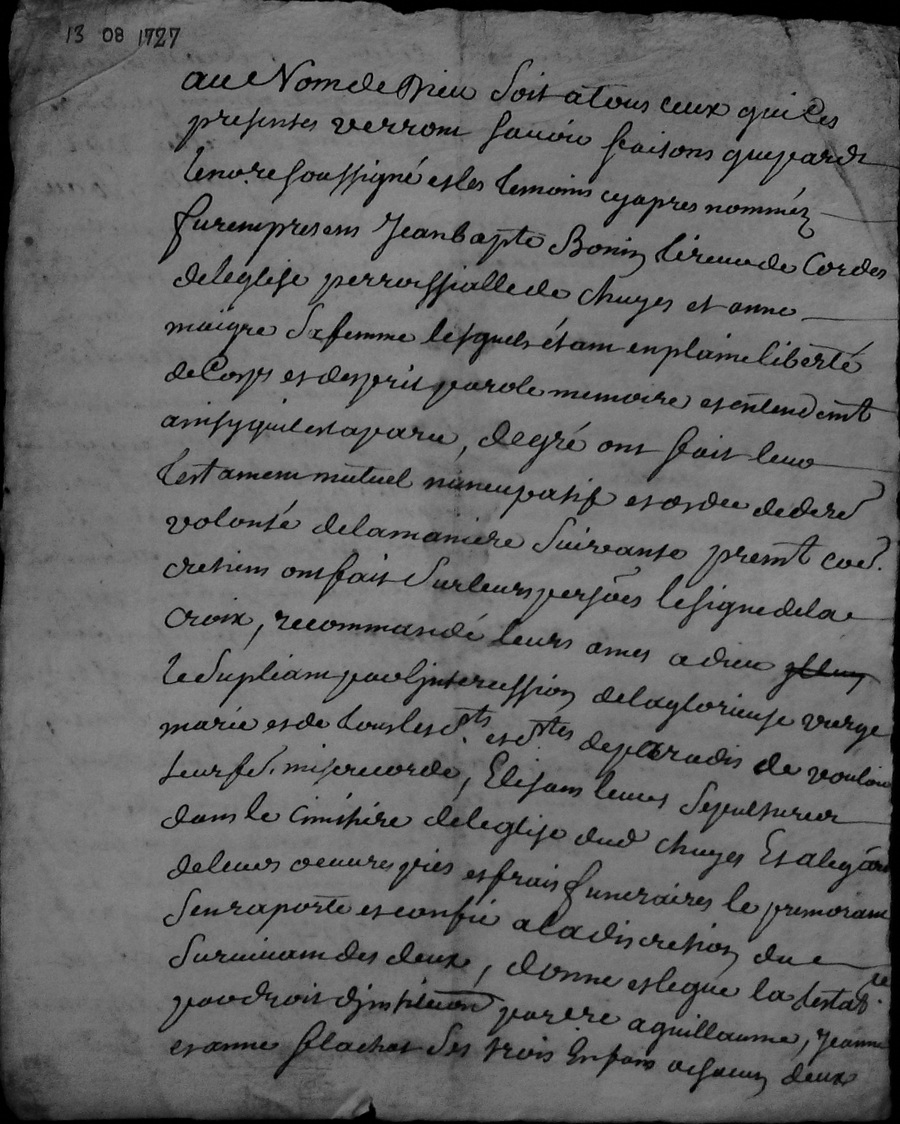 13 08 1727
au Nom de Dieu Soit a tous ceux qui Ces
presentes verront Savoir faisons que pard.t
le no.re soussigné et les temoins cy apres nomméz
furent presens Jean bapte Bonin tireur de Cordes
de leglise perrossialle de Chuyes et anne
maigre Sa femme lesquels étant en plaine liberté
de Corps et desprit parole memoire et entendemt
ainsy quil est aparu, de gré ont fait leur
testament mutuel nuncupatif et ordce de dere
volonté de la maniere Suivante premt coe.
cretiens ont fait Sur leurs persoes le signe de la
Croix, recommandé leurs ames a dieu
le Supliant par lintercession de la glorieuse vierge
marie et de tous les Sts. et Stes de paradis de vouloir
leur fe. misericorde, Elisant leurs Sepultures
dans le Cimitiere de leglise dud Chuyes Et alegard
de leurs oeuvres pies et frais funeraires le premorant
Sen raporte et confie a la discretion du
Survivant des deux, donne et legue la testat.ce
par droit dinstituon par.re a guillaume, Jeanne
et anne flachat Ses trois Enfans a chacun deux